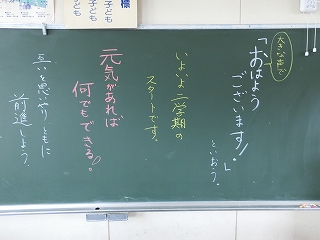 大きな声で
「おはよう
ございます!」
といおう。
いよいよ二学期の
スタートです。
元気があれば
何でもできる!!
互いを思いやりともに
前進しよう。
標
子ども
子ども